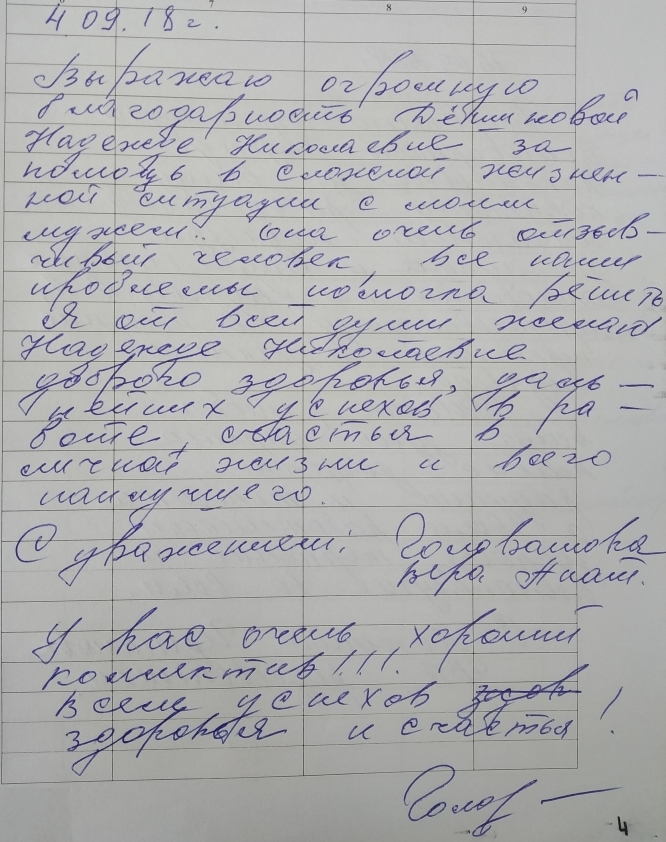 7 8 9
4.09.18 г.
Выражаю огромную
благодарность
Надежде Николаевне за
помощь в сложной жизнен-
ной ситуации с моим
мужем.. Она очень отзыв-
чивый человек, все наши
проблемы помогла решить
Я от всей души желаю
Надежде Николаевне
доброго здоровья, даль-
нейших успехов в ра-
боте, счастья в
личной жизни и всего
наилучшего.
С уважением:
Вера Анат.
У вас очень хороший
коллектив!!!
Всем успехов
здоровья и счастья!
4